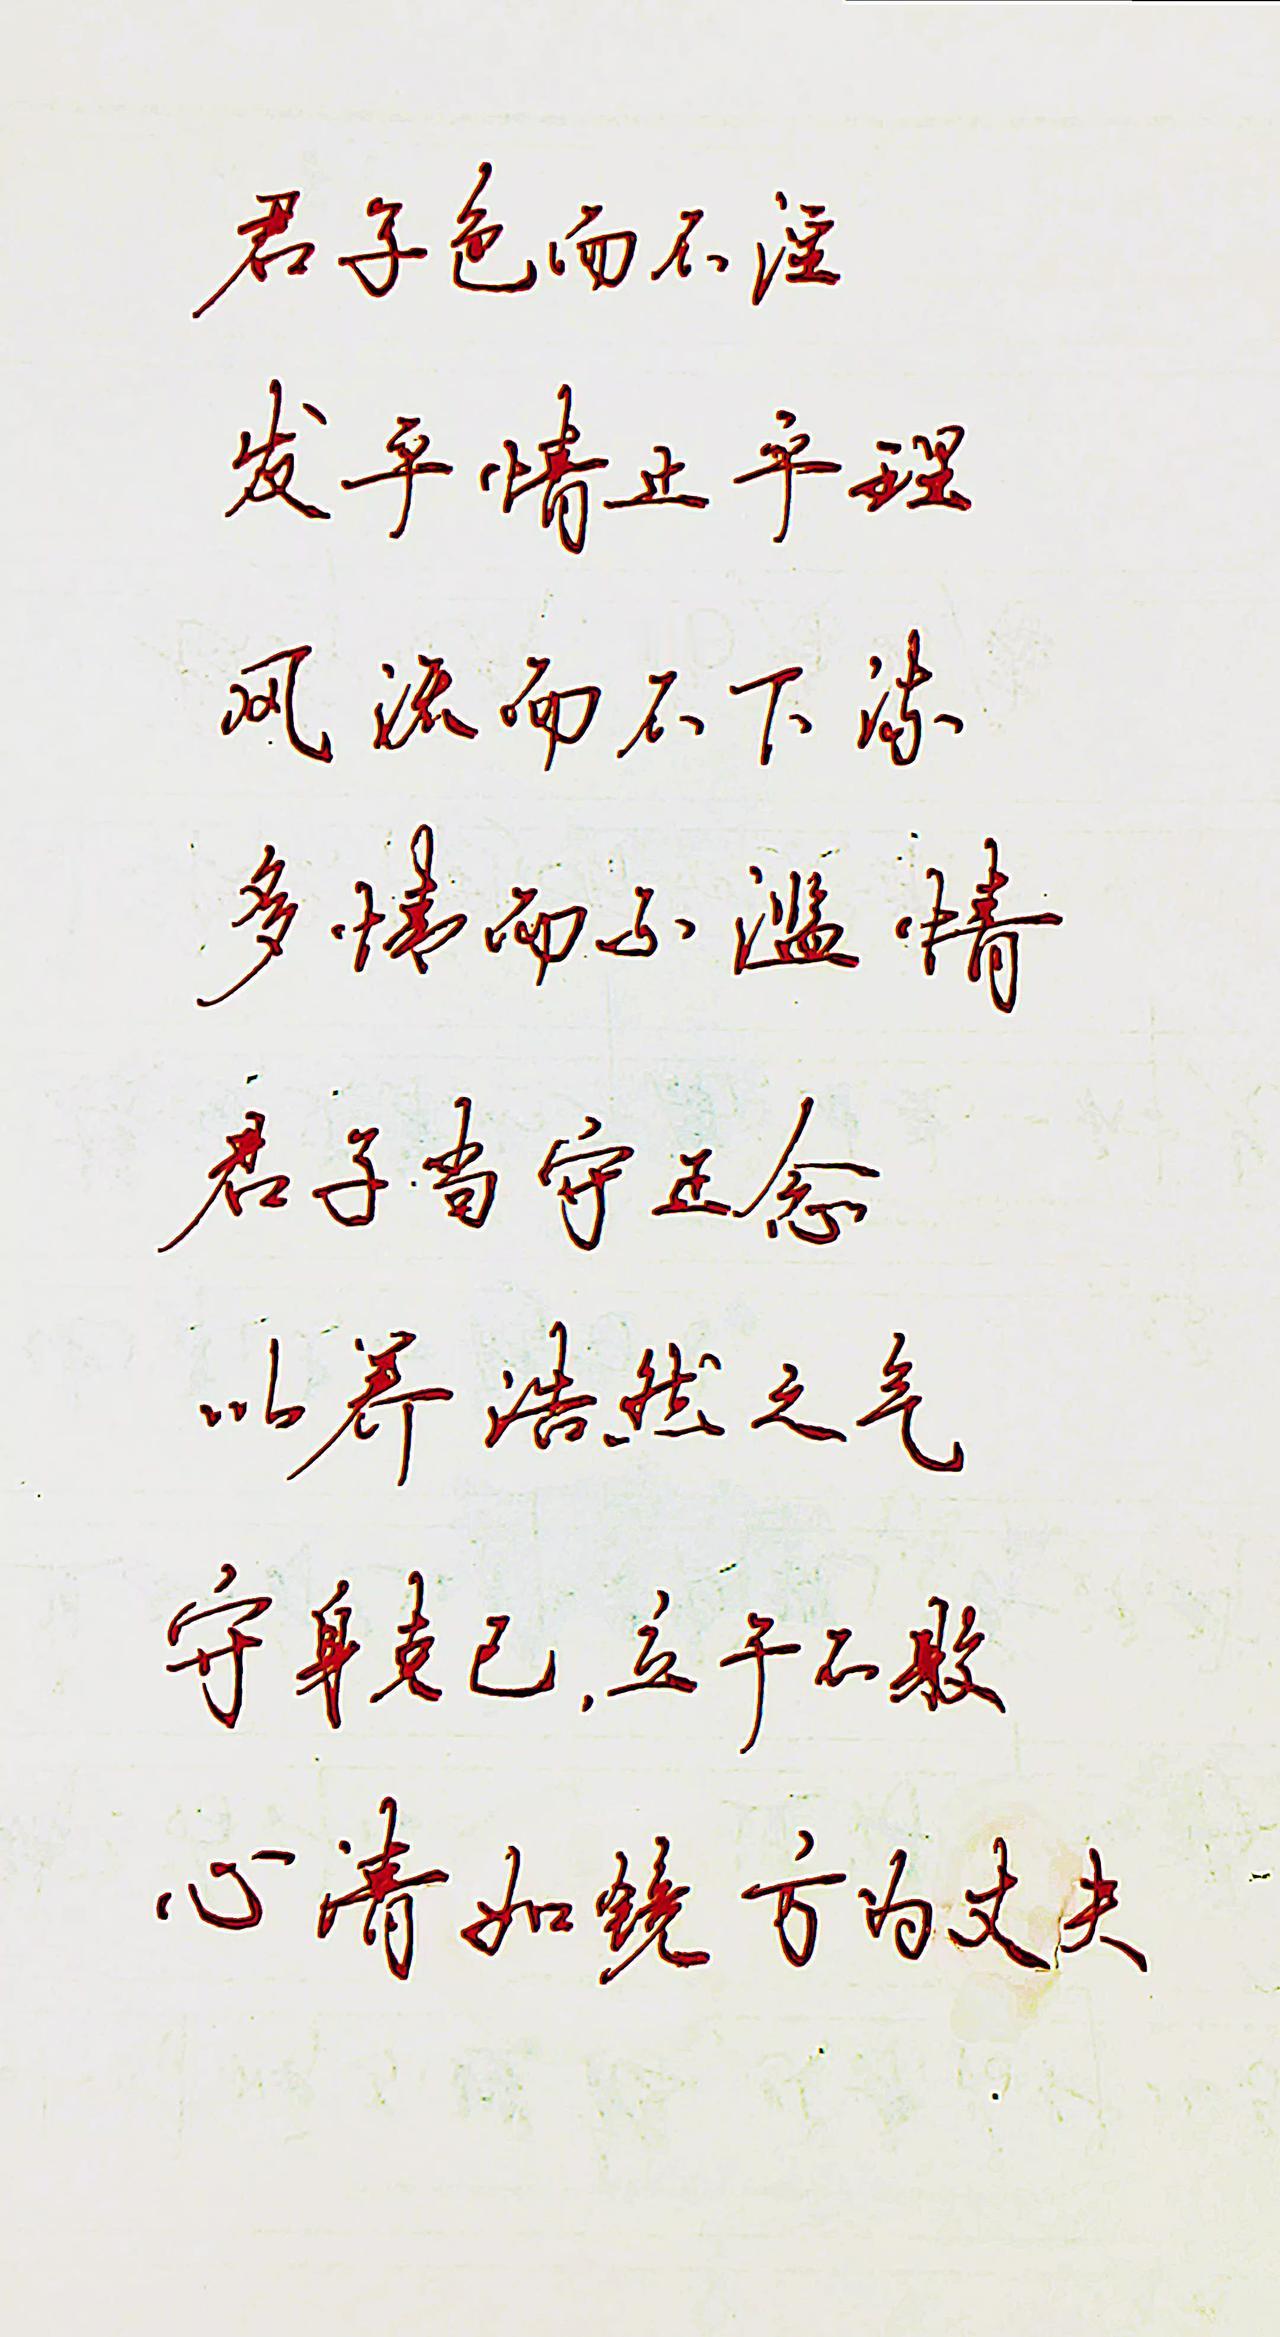 君子色而不淫
发乎情止乎理
风流而不下流
多情而不滥情
君子当守正念
以养浩然之气
守身克己,立于不败
心清如镜方为丈夫